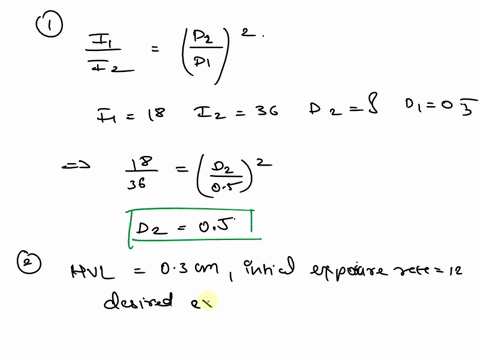 ①
I₁/I₂ = (D₂/D₁)²
I₁ = 18 I₂ = 36 D₂ = ∫ D₁ = 0.5
⇒ 18/36 = (D₂/0.5)²
D₂ = 0.5
② HVL = 0.3 cm, initial exposure rate = 12
desired ex